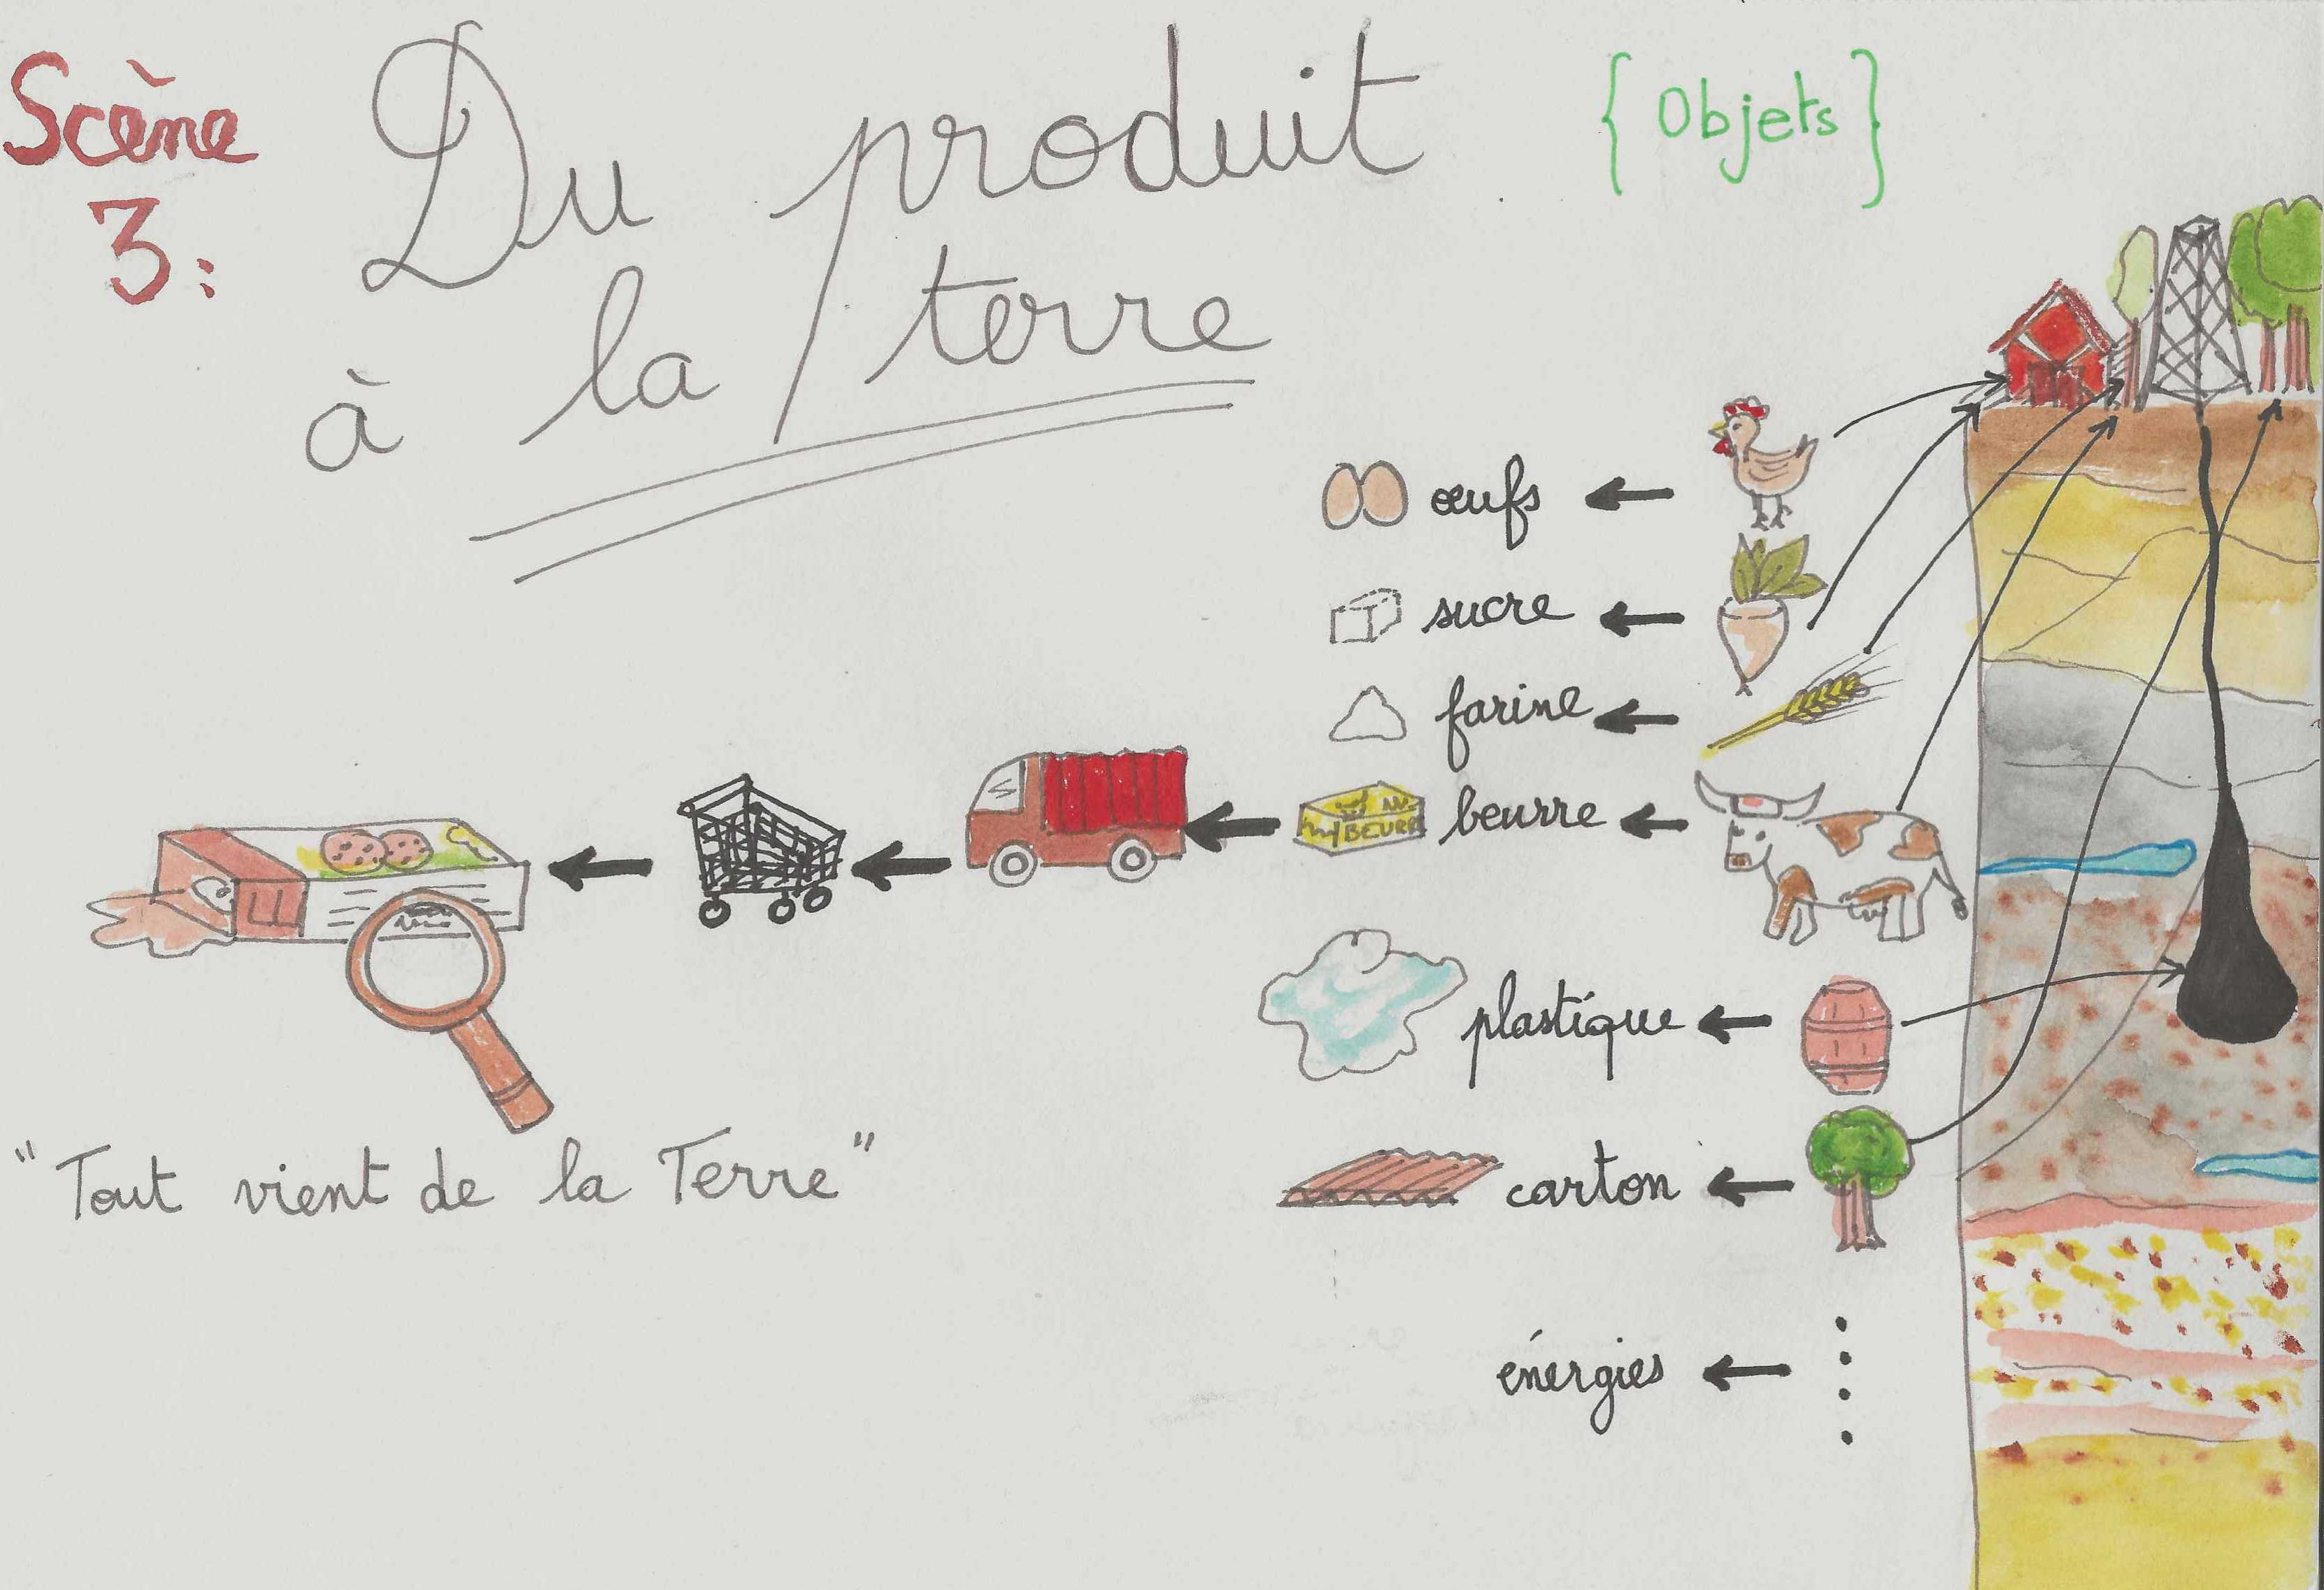 Scène
3:
Du produit
à la terre
{ Objets }
œufs
sucre
farine
BEURR
beurre
plastique
carton
énergies
"Tout vient de la Terre"